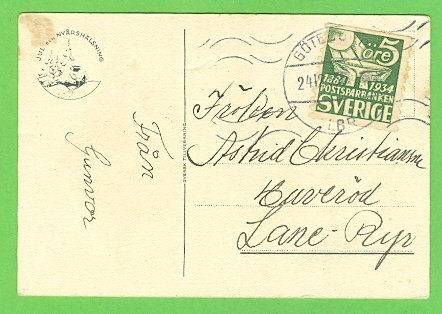 JUL- OCH NYÅRSHÄLSNING
Från
Gunvor
SVENSK TILLVERKNING
GÖTEB
24
LBR
5
ÖRE
1884 1934
POSTSPARBANKEN
SVERIGE
Fröken
Astrid Christianson
Huveröd
Lane-Ryr